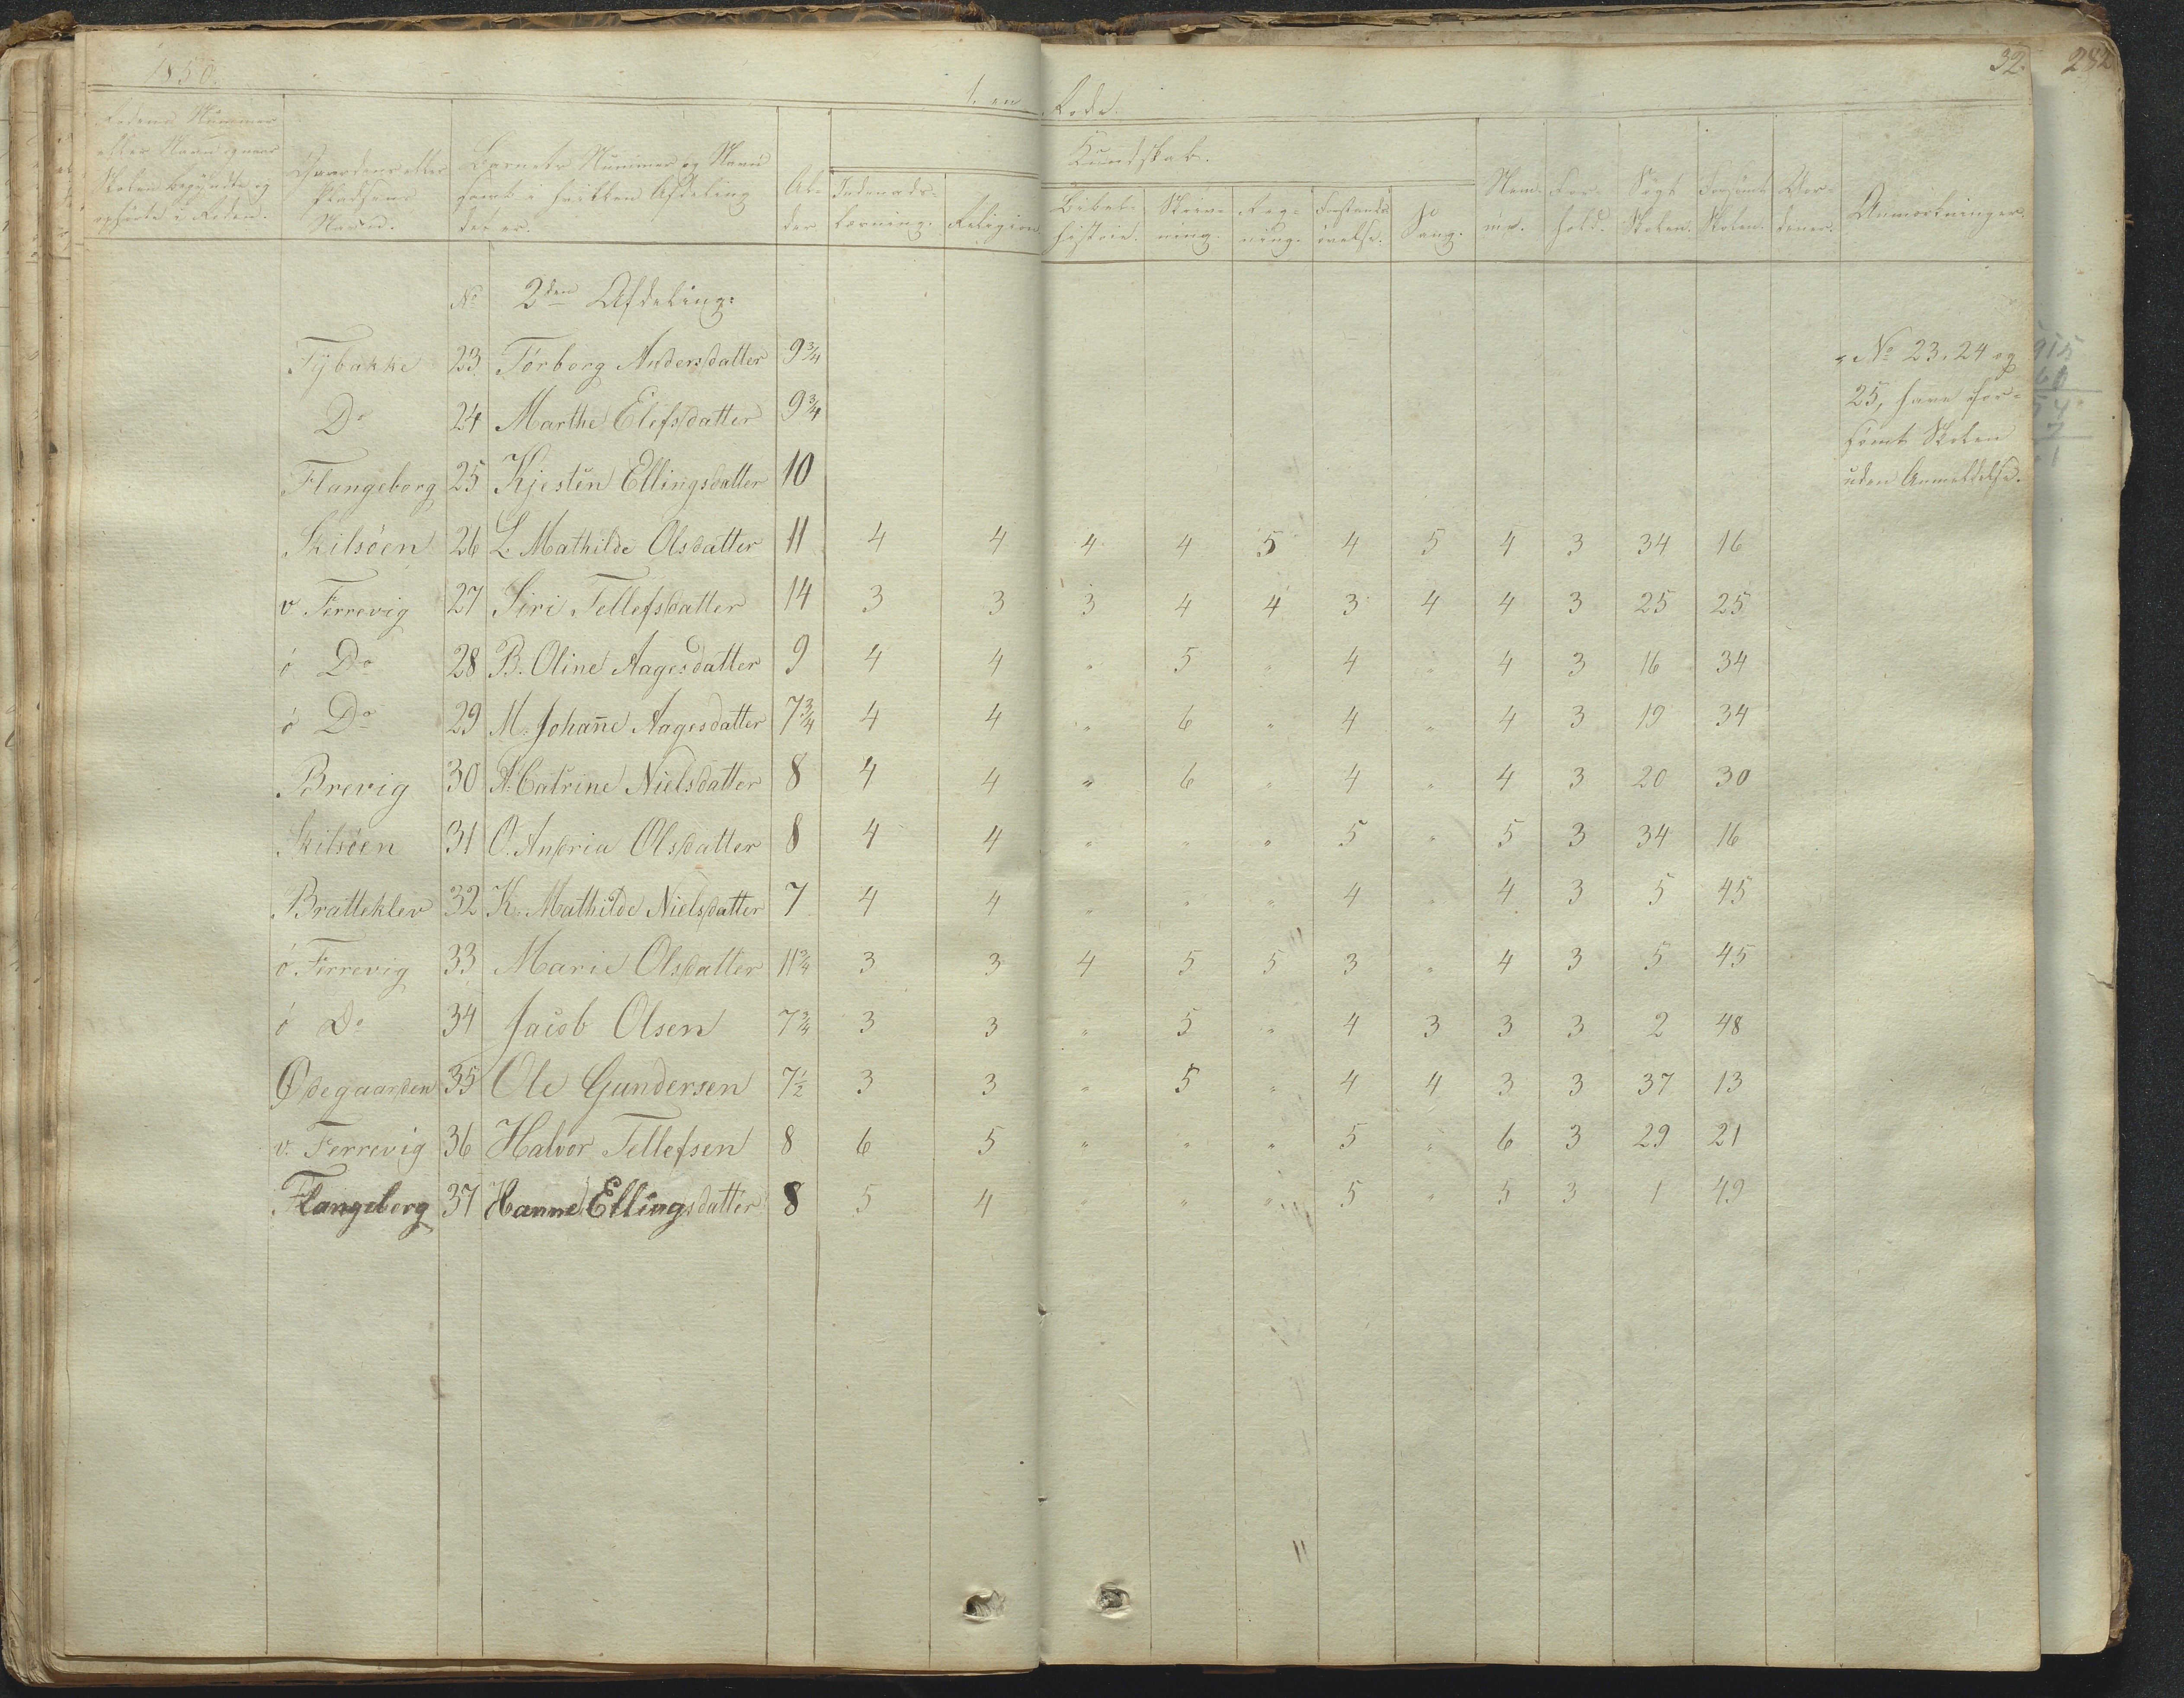 1850. 1. en Rode. 32. 282
Rodens Nummer eller Navn og naar Skolen begyndte og ophörte i Roden. | Gaardens eller Pladsens Navn. | Barnets Nummer og Navn samt i hvilken Afdeling det er. | Al- der | Indenads- læsning. | Religion | Kundskab. Bibel- historie. | Skriv- ning. | Reg- ning. | Forstands- övelse. | Sang. | Nem- me. | For- hold. | Sögt Skolen. | Forsömt Skolen. | | Anmærkninger.
No 2den Afdeling:
Tÿbakke 23 Torborg Andersdatter 9 3/4 No 23. 24 og
Do 24 Marthe Elefsdatter 9 3/4 25, have for-
sömt Skolen
Flangeborg 25 Kjesten Ellingsdatter 10 uden Anmeldelse.
Skilsöen 26 L. Mathilde Olsdatter 11 4 4 4 4 5 4 5 4 3 34 16
v Ferrevig 27 Siri Tellefsdatter 14 3 3 3 4 4 3 4 4 3 25 25
ö Do 28 B. Oline Aagesdatter 9 4 4 " 5 " 4 " 4 3 16 34
ö Do 29 M. Johan̄e Aagesdatter 7 3/4 4 4 " 6 " 4 " 4 3 19 34
Brevig 30 A. Catrine Nielsdatter 8 4 4 " 6 " 4 " 4 3 20 30
Skilsöen 31 O. Andria Olsdatter 8 4 4 " " " 5 " 5 3 34 16
Bratteklev 32 K. Mathilde Nielsdatter 7 4 4 " " " 4 " 4 3 5 45
ö. Ferrevig 33 Marie Olsdatter 11 3/4 3 3 4 5 5 3 " 4 3 5 45
ö Do 34 Jacob Olsen 7 3/4 3 3 " 5 " 4 3 3 3 2 48
Ødegaarden 35 Ole Gundersen 7 1/2 3 3 " 5 " 4 4 3 3 37 13
v. Ferrevig 36 Halvor Tellefsen 8 6 5 " " " 5 " 6 3 29 21
Flangeborg 37 Hanne Ellingsdatter 8 5 4 " " " 5 " 5 3 1 49